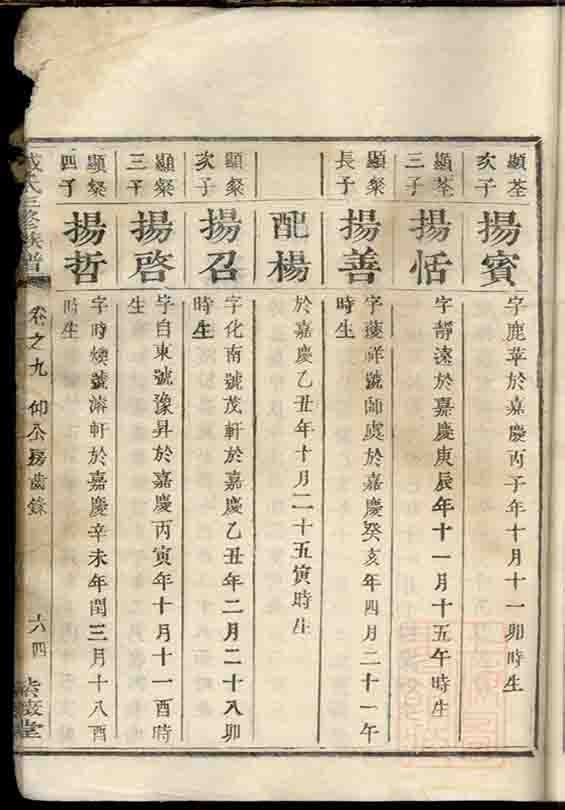 顯荃
次子
揚賓
字鹿苹於嘉慶丙子年十月十一卯時生
顯荃
三子
揚恬
字靜遠於嘉慶庚辰年十一月十五午時生
顯粲
長子
揚善
字 祥號師虞於嘉慶癸亥年四月二十一午
時生
配楊
於嘉慶乙丑年十月二十五寅時生
顯粲
次子
揚召
字化南號茂軒於嘉慶乙丑年二月二十八卯
時生
顯粲
三子
揚啓
字自東號豫昇於嘉慶丙寅年十月十一酉時
生
顯粲
四子
揚哲
字時煥號濬軒於嘉慶辛未年閏三月十八酉
時生
氏三修族譜
卷之九
仰公房齒錄
六四
堂